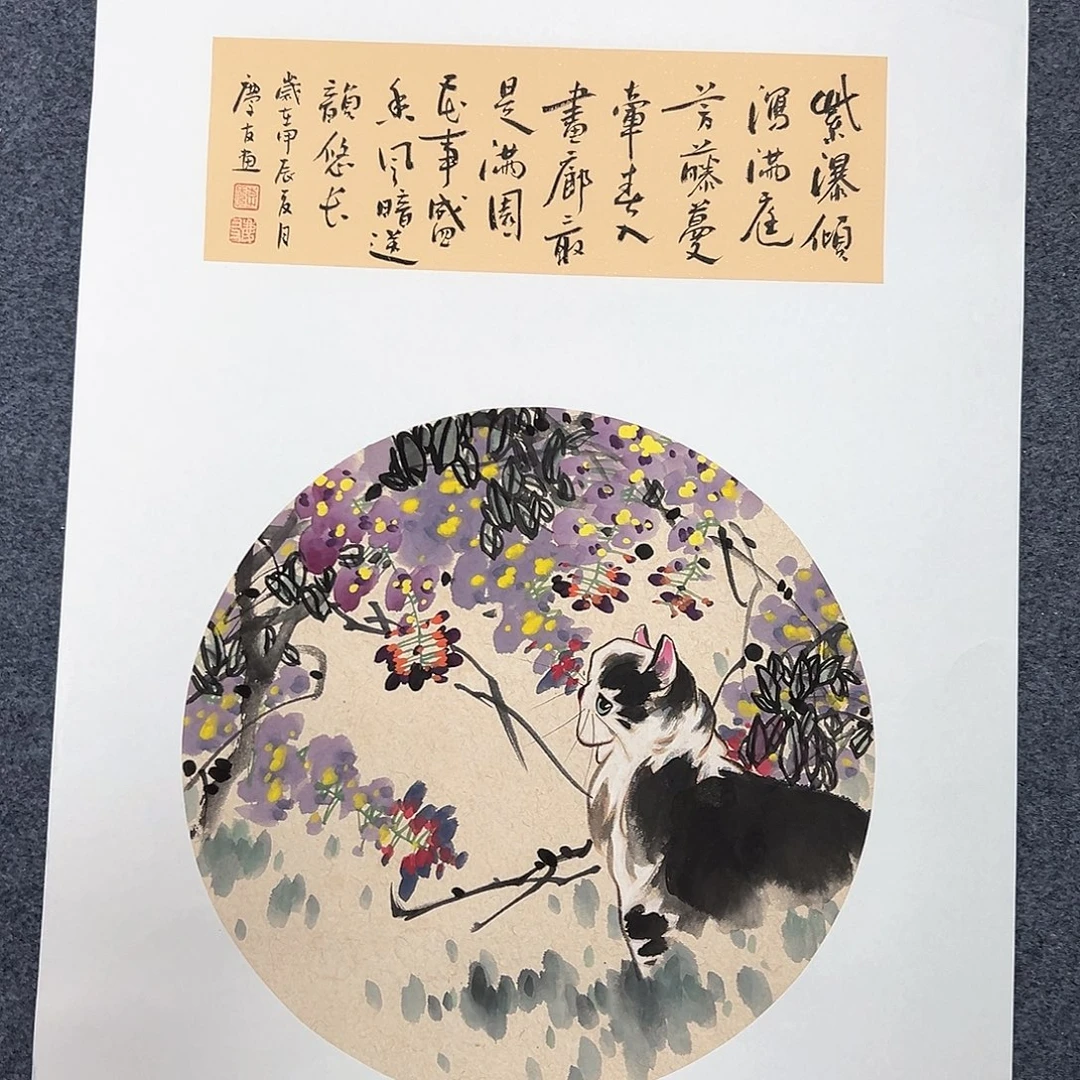 紫瀑傾
瀉滿庭
芳藤蔓
牽春入
畫廊最
是滿園
花事盛
香風暗送
韻悠长
歲在甲辰夏月
慶友画